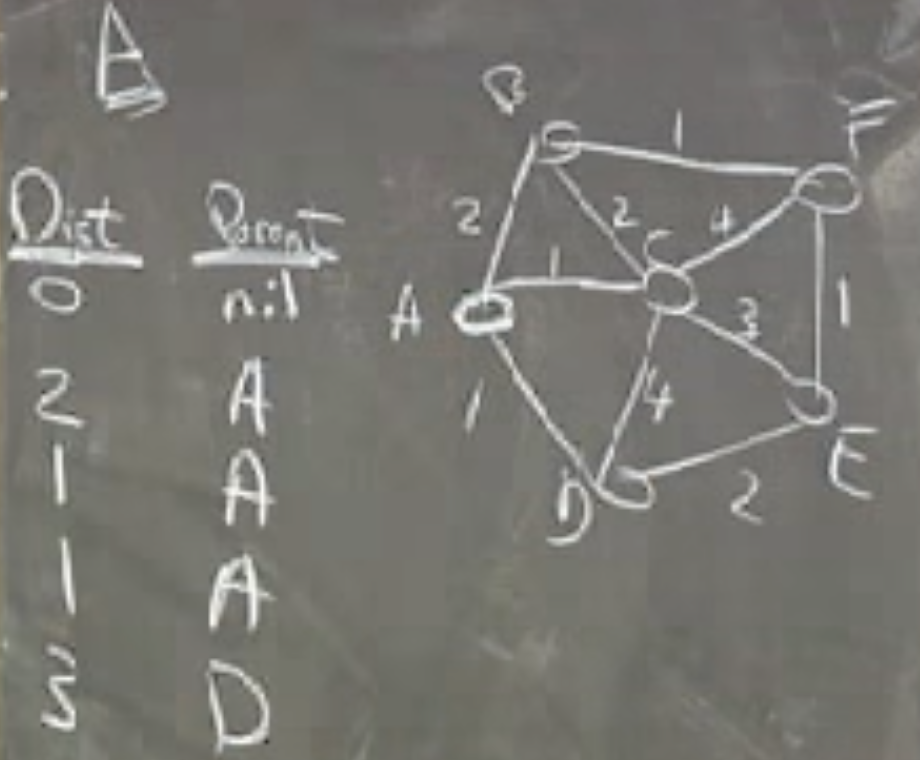 E
Dist Parent
0 nil
2 A
1 A
1 A
3 D
B
1
F
2
2
C
4
A
1
3
1
1
4
D
2
E